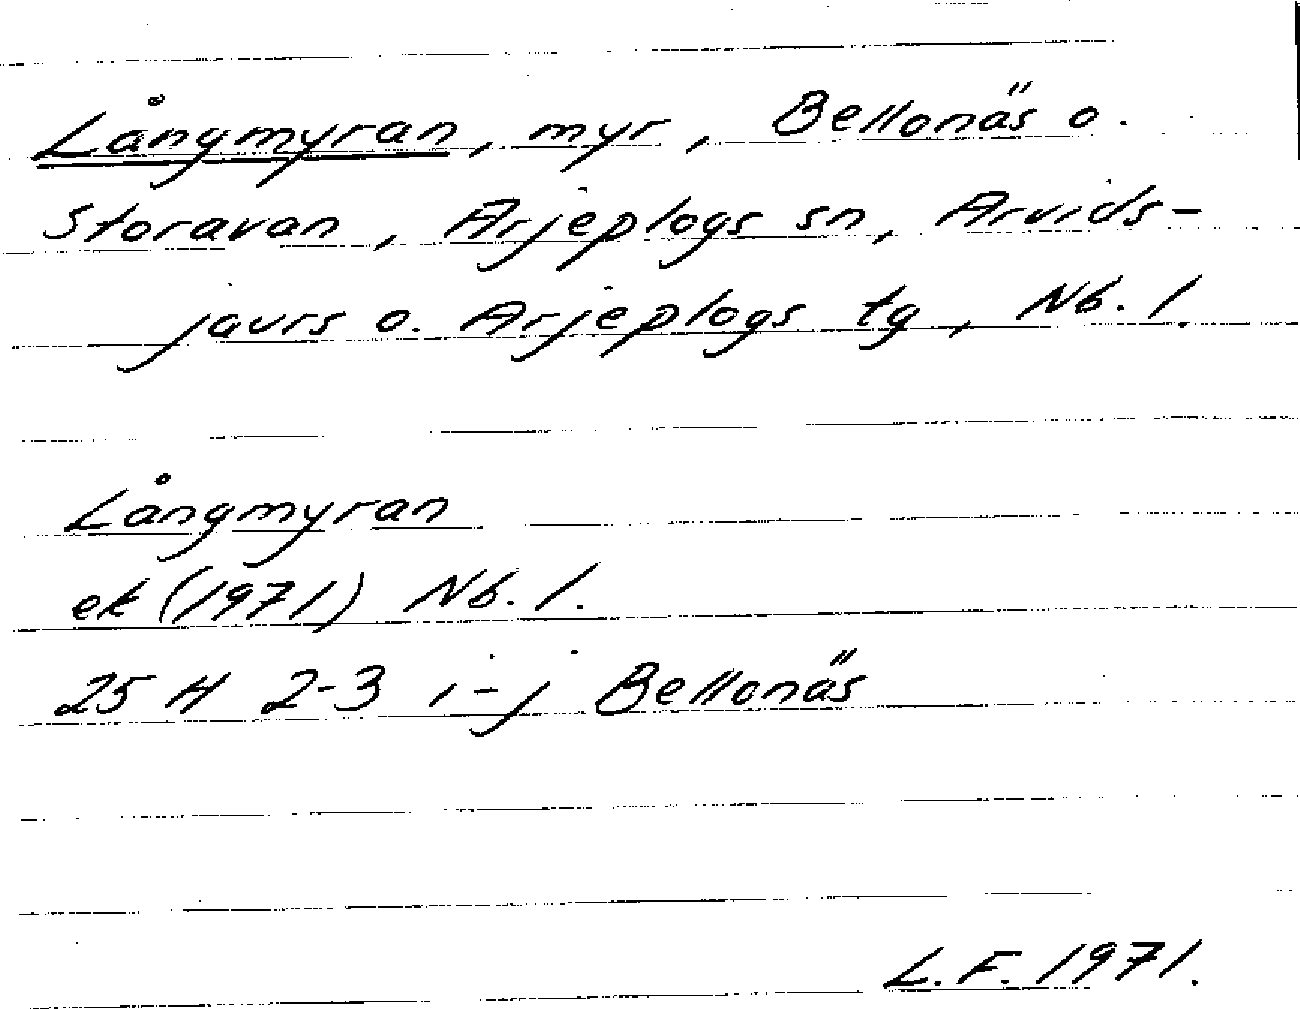 Långmyran, myr, Bellonäs o.
Storavan, Arjeplogs sn, Arvids-
jaurs o. Arjeplogs tg, Nb. l.
Långmyran
ek (1971) Nb. l.
25 H 2-3 i-j Bellonäs
L.F. 1971.